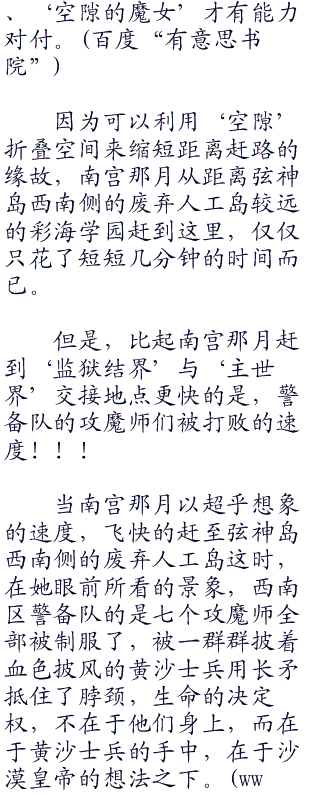 、‘空隙的魔女’才有能力
对付。(百度“有意思书
院”)
因为可以利用‘空隙’
折叠空间来缩短距离赶路的
缘故，南宫那月从距离弦神
岛西南侧的废弃人工岛较远
的彩海学园赶到这里，仅仅
只花了短短几分钟的时间而
已。
但是，比起南宫那月赶
到‘监狱结界’与‘主世
界’交接地点更快的是，警
备队的攻魔师们被打败的速
度！！！
当南宫那月以超乎想象
的速度，飞快的赶至弦神岛
西南侧的废弃人工岛这时，
在她眼前所看的景象，西南
区警备队的是七个攻魔师全
部被制服了，被一群群披着
血色披风的黄沙士兵用长矛
抵住了脖颈，生命的决定
权，不在于他们身上，而在
于黄沙士兵的手中，在于沙
漠皇帝的想法之下。(ww